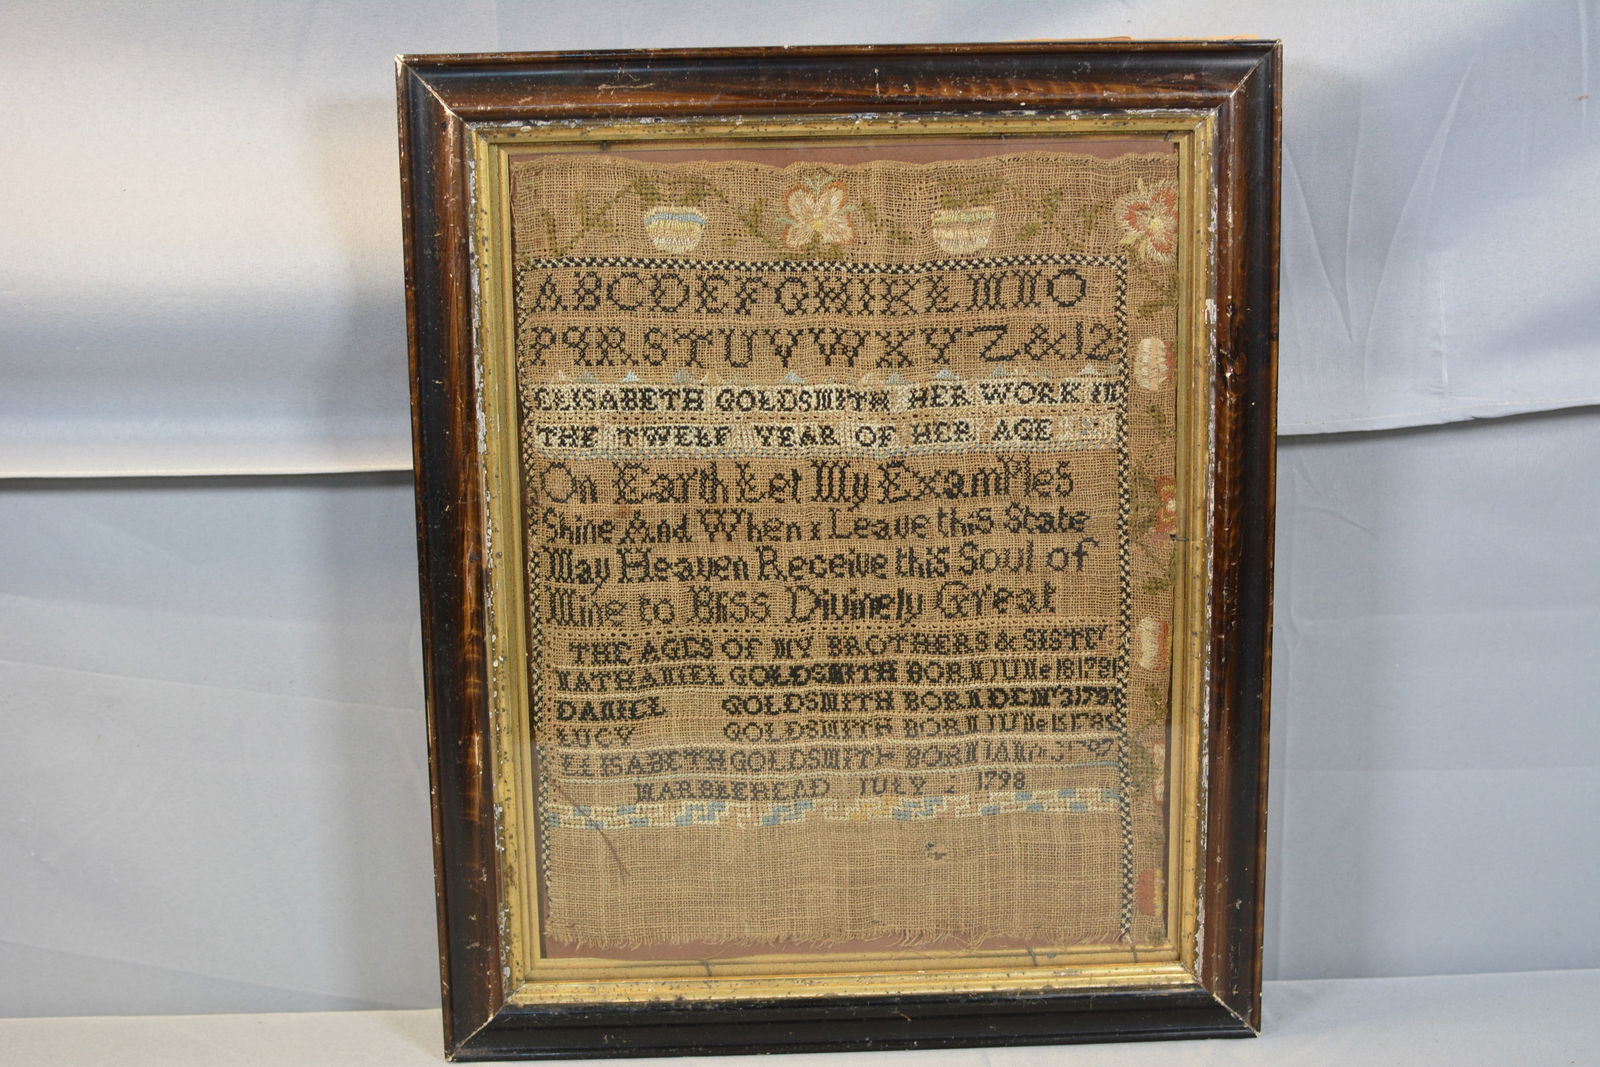 ABCDEFGHIKLMNO
PQRSTUVWXYZ&12
ELISABETH GOLDSMITH HER WORK IN
THE TWELF YEAR OF HER AGE
On Earth Let My ExamPles
Shine And When i Leave this State
May Heaven Receive this Soul of
Mine to Bliss Divinely Great
THE AGES OF MY BROTHERS & SISTE
NATHANIEL GOLDSMITH BORN JUNe 18
DANIEL GOLDSMITH BORN
LUCY GOLDSMITH BORN JUNe 15
ELISABETH GOLDSMITH BORN
MARBLEHEAD JULY 2 1798